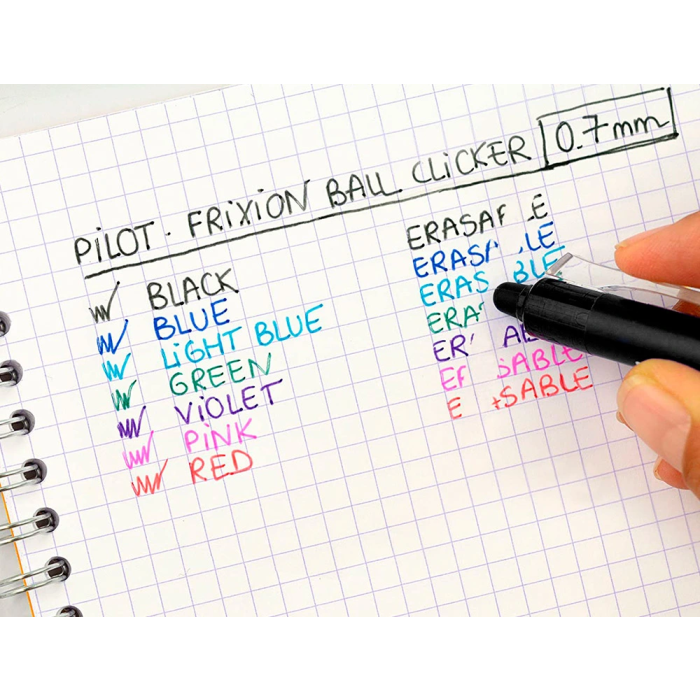 PiLOT - FRiXION BALL CLiCKER 0.7mm
BLACK
BLUE
LiGHT BLUE
GREEN
ViOLET
PiNK
RED
ERASA LE
ERASA LE
ERAS BLE
ERA
ER AB
ER SABLE
E ASABLE